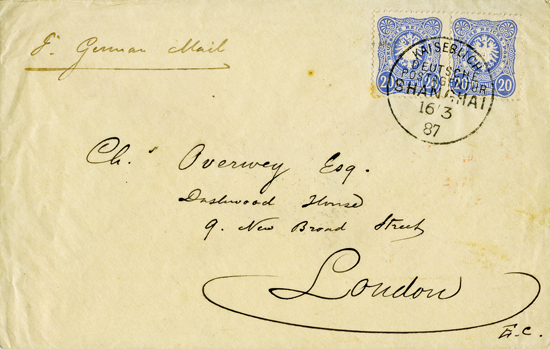 pr German Mail
20 20
KAISERLICH
DEUTSCHE
POSTAGENTUR
SHANGHAI
16/3
87
Chs Overwey Esq.
Dashwood House
9. New Broad Street
London
E.C.